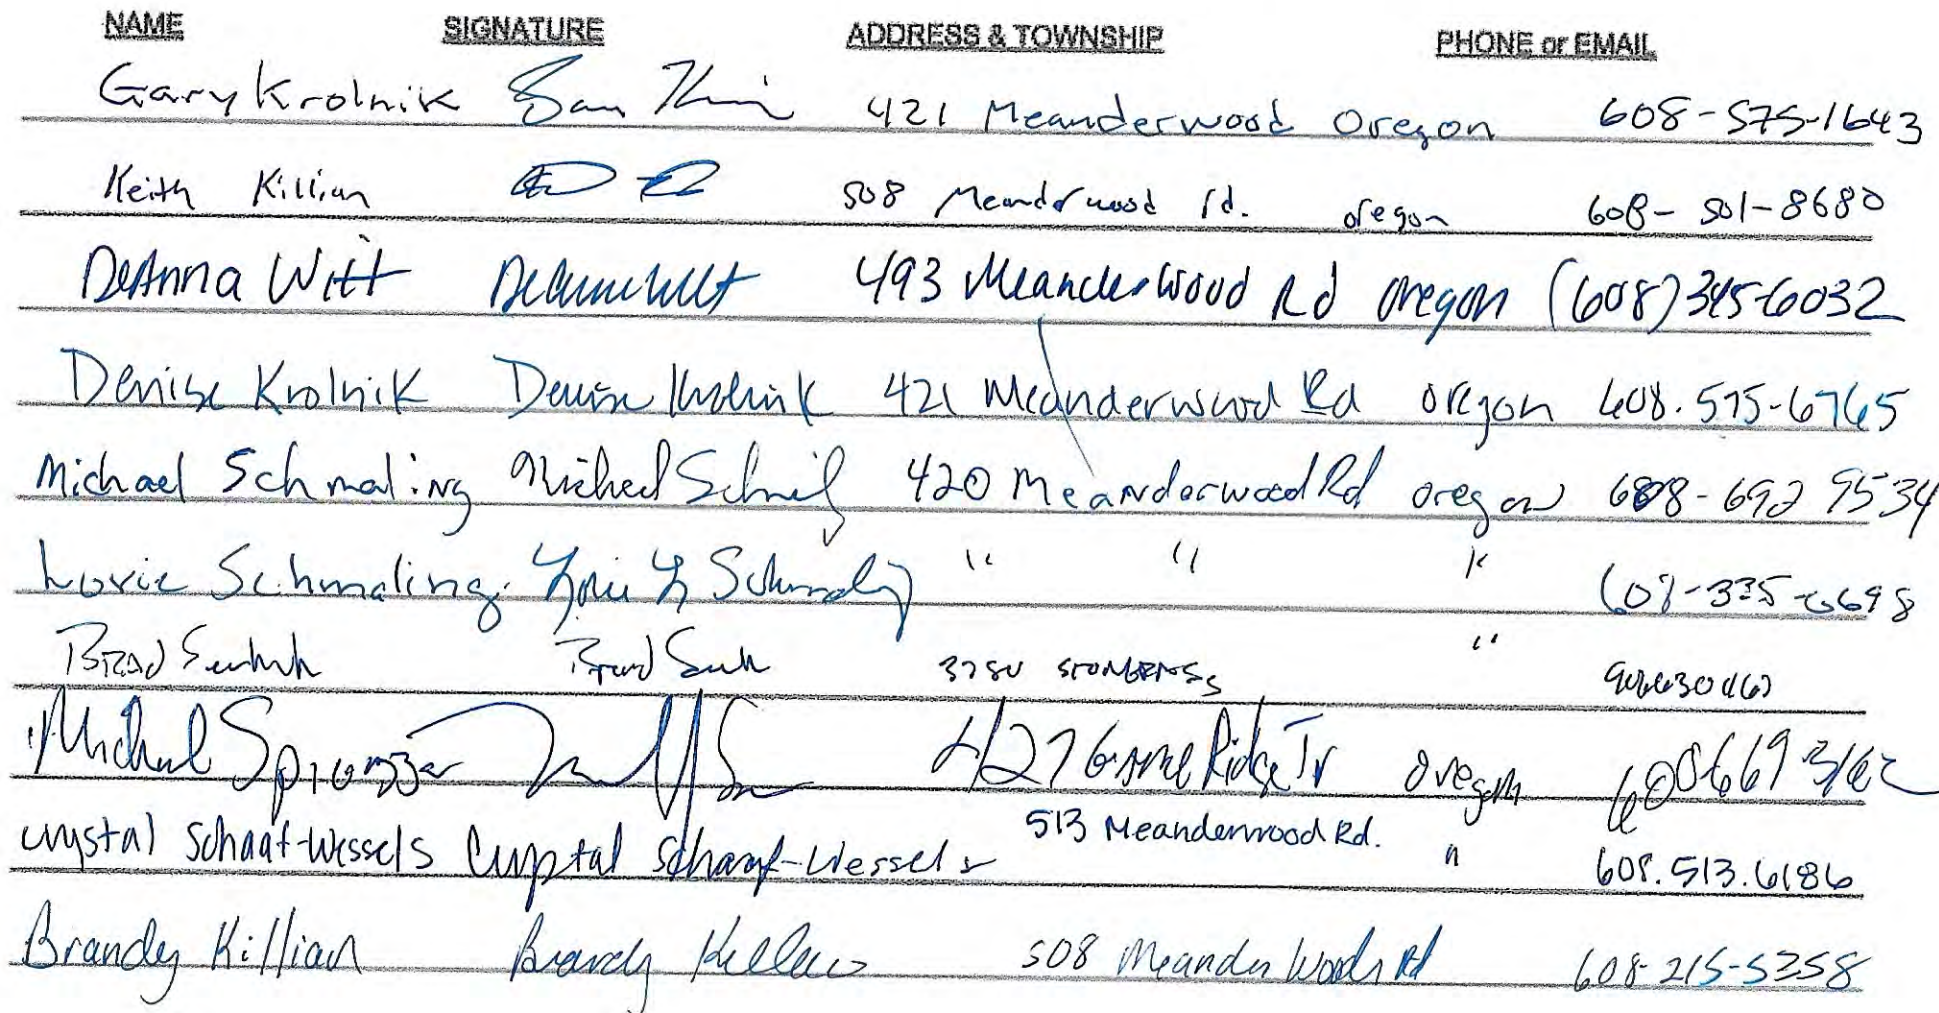 NAME SIGNATURE ADDRESS & TOWNSHIP PHONE or EMAIL
Gary Krolnik 421 Meanderwood Oregon 608-575-1643
Keith Killian 508 Meanderwood rd. oregon 608-501-8680
DeAnna Witt DeAnna Witt 493 Meanderwood Rd oregon (608) 345-6032
Denise Krolnik Denise Krolnik 421 Meanderwood Rd oregon 608.575-6765
Michael Schmaling Michael 420 Meanderwood Rd oregon 608-692 9534
Lorie Schmaling Lorie L Schmaling " " "
Brad Brad "
Michael Ridge Tr oregon
Crystal Schaaf-Wessels Crystal Schaaf-Wessels 513 Meanderwood Rd. " 608.513.6186
Brandy Killian Brandy Killian 508 Meander Woods Rd 608-215-5258